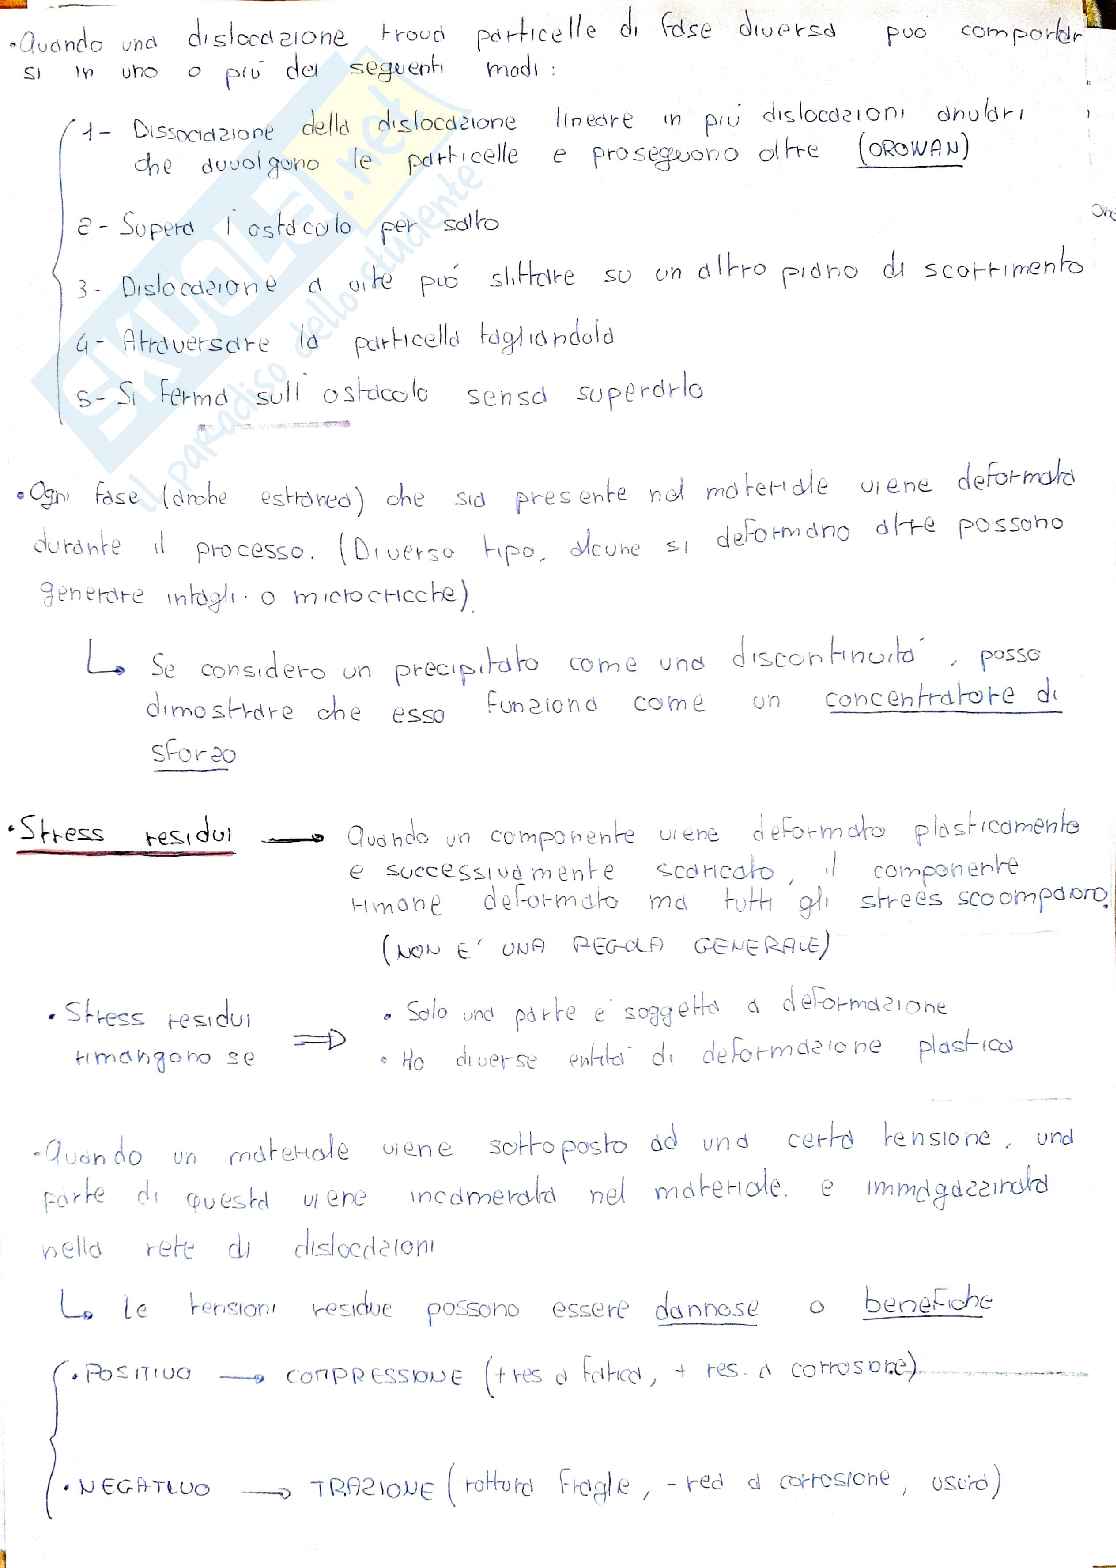 • Quando una dislocazione trova particelle di fase diversa può comportar
si in uno o più dei seguenti modi:
1- Dissociazione della dislocazione lineare in più dislocazioni anulari
che avvolgono le particelle e proseguono oltre (OROWAN)
2- Supera l'ostacolo per salto
3- Dislocazione a vite può slittare su un altro piano di scorrimento
4- Attraversare la particella tagliandola
5- Si ferma sull'ostacolo sensa superarlo
• Ogni fase (anche estranea) che sia presente nel materiale viene deformata
durante il processo. (Diverso tipo, alcune si deformano altre possono
generare intagli o microcricche).
↳ Se considero un precipitato come una discontinuità, posso
dimostrare che esso funziona come un concentratore di
sforzo
• Stress residui → Quando un componente viene deformato plasticamente
e successivamente scaricato, il componente
rimane deformato ma tutti gli strees scoompaiono.
(NON E' UNA REGOLA GENERALE)
• Stress residui
rimangono se
⇒
• Solo una parte è soggetta a deformazione
• Ho diverse entità di deformazione plastica
• Quando un materiale viene sottoposto ad una certa tensione, una
parte di questa viene incamerata nel materiale. e immagazzinata
nella rete di dislocazioni
↳ le tensioni residue possono essere dannose o benefiche
• POSITIVO → COMPRESSIONE (+ res a fatica, + res. a corrosione)
• NEGATIVO → TRAZIONE (rottura fragile, - res a corrosione, usura)
SKUOLA.net
il paradiso dello studente